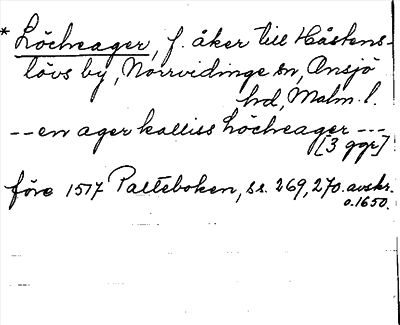 * Löcheager, f. åker till Håstens-
lövs by, Norrvidinge sn, Onsjö
hd, Malm. l.
-- en ager kalliss Löcheager ---
[3 ggr]
före 1517 Palteboken, ss. 269, 270. avskr.
o. 1650.